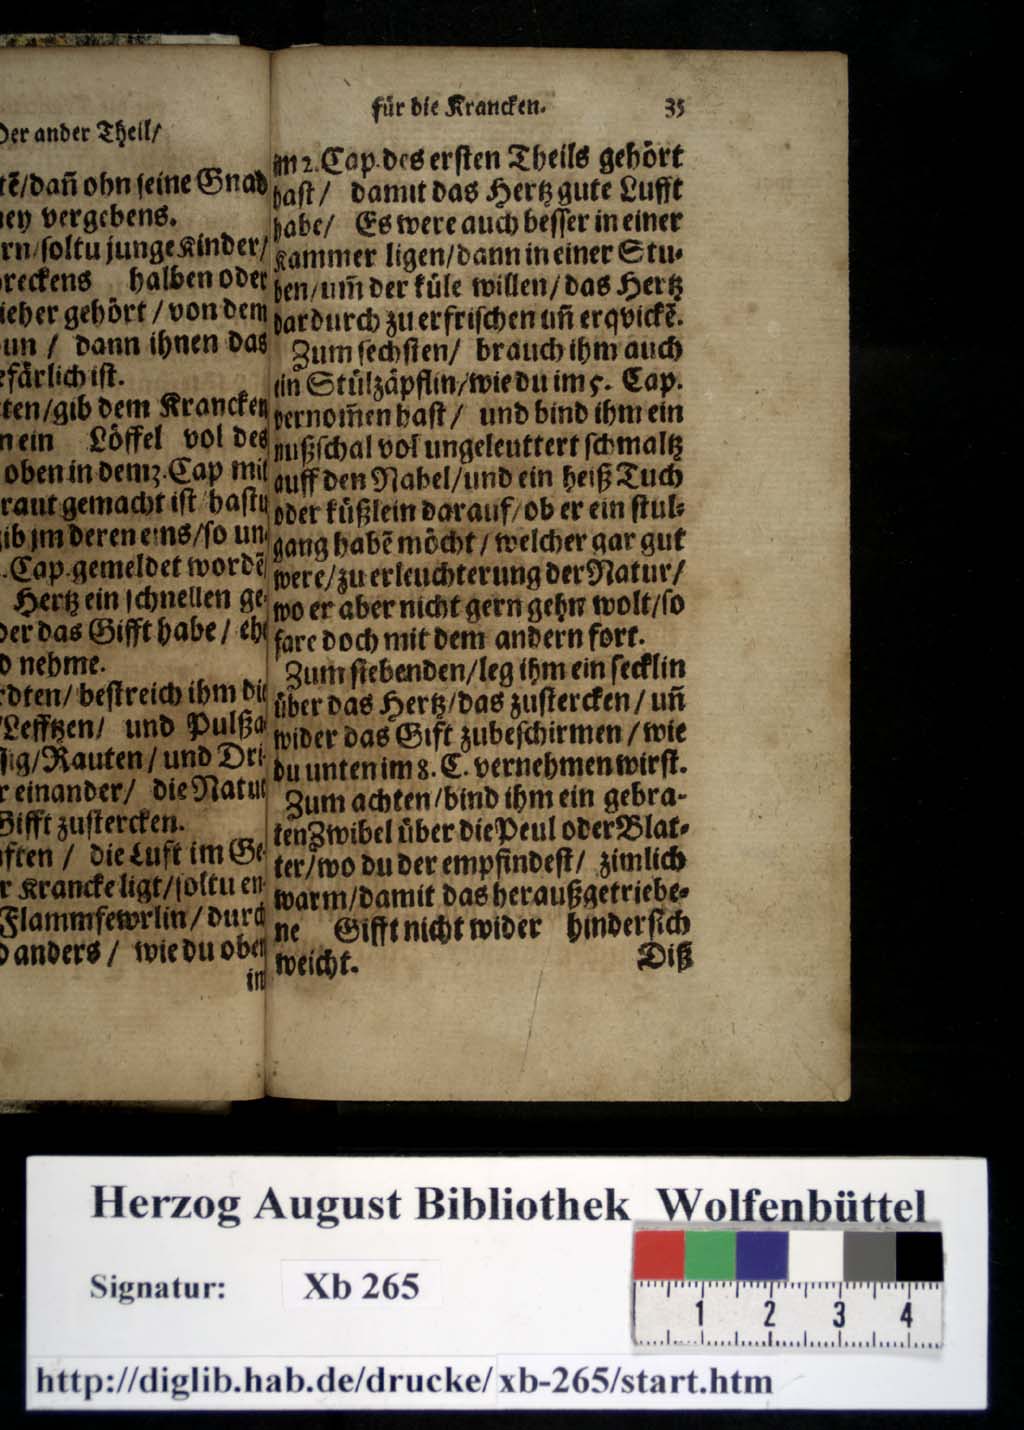 Der ander Theil/
tē/dañ ohn seine Gnad
ney vergebens.
rn/soltu junge Kinder/
reckens halben oder
ieber gehört/von dem
un/ dann ihnen das
efärlich ist.
ten/gib dem Krancken
n ein Löffel vol des
oben in dem 13. Cap mit
raut gemacht ist hastu
ib jm deren eins/so un
. Cap. gemeldet wordē
Hertz ein schnellen ge
der das Gifft habe/ ehe
d nehme.
rdten/ bestreich ihm die
/Lefftzen/ und Pulßa
sig/Rauten/ und Dri
r einander/ die Natur
Gifft zustercken.
fften/ die Luft im Ge
r Krancke ligt/soltu en
Flammfewrlin/durch
d anders/ wie du oben
in
für die Krancken. 35
im 2. Cap. des ersten Theils gehört
hast/ damit das Hertz gute Lufft
habe/ Es were auch besser in einer
Kammer ligen/dann in einer Stu-
ben/um̃ der küle willen/das Hertz
dardurch zu erfrischen uñ erqvickē.
Zum sechsten/ brauch ihm auch
ein Stülzäpflin/wie du im 5. Cap.
vernom̃en hast/ und bind ihm ein
nußschal vol ungeleuttert schmaltz
auff den Nabel/und ein heiß Tuch
oder küßlein darauf/ob er ein stul-
gang habē möcht/welcher gar gut
were/zu erleuchterung der Natur/
wo er aber nicht gern gehn wolt/so
fare doch mit dem andern fort.
Zum siebenden/leg ihm ein secklin
über das Hertz/das zustercken/uñ
wider das Gift zubeschirmen/wie
du unten im 8. C. vernehmen wirst.
Zum achten/bind ihm ein gebra-
ten Zwibel über die Peul oder Blat-
ter/wo du der empfindest/ zimlich
warm/damit das heraußgetriebe-
ne Gifft nicht wider hindersich
weicht.
Diß
Herzog August Bibliothek Wolfenbüttel
Signatur: Xb 265
1 2 3 4
http://diglib.hab.de/drucke/xb-265/start.htm